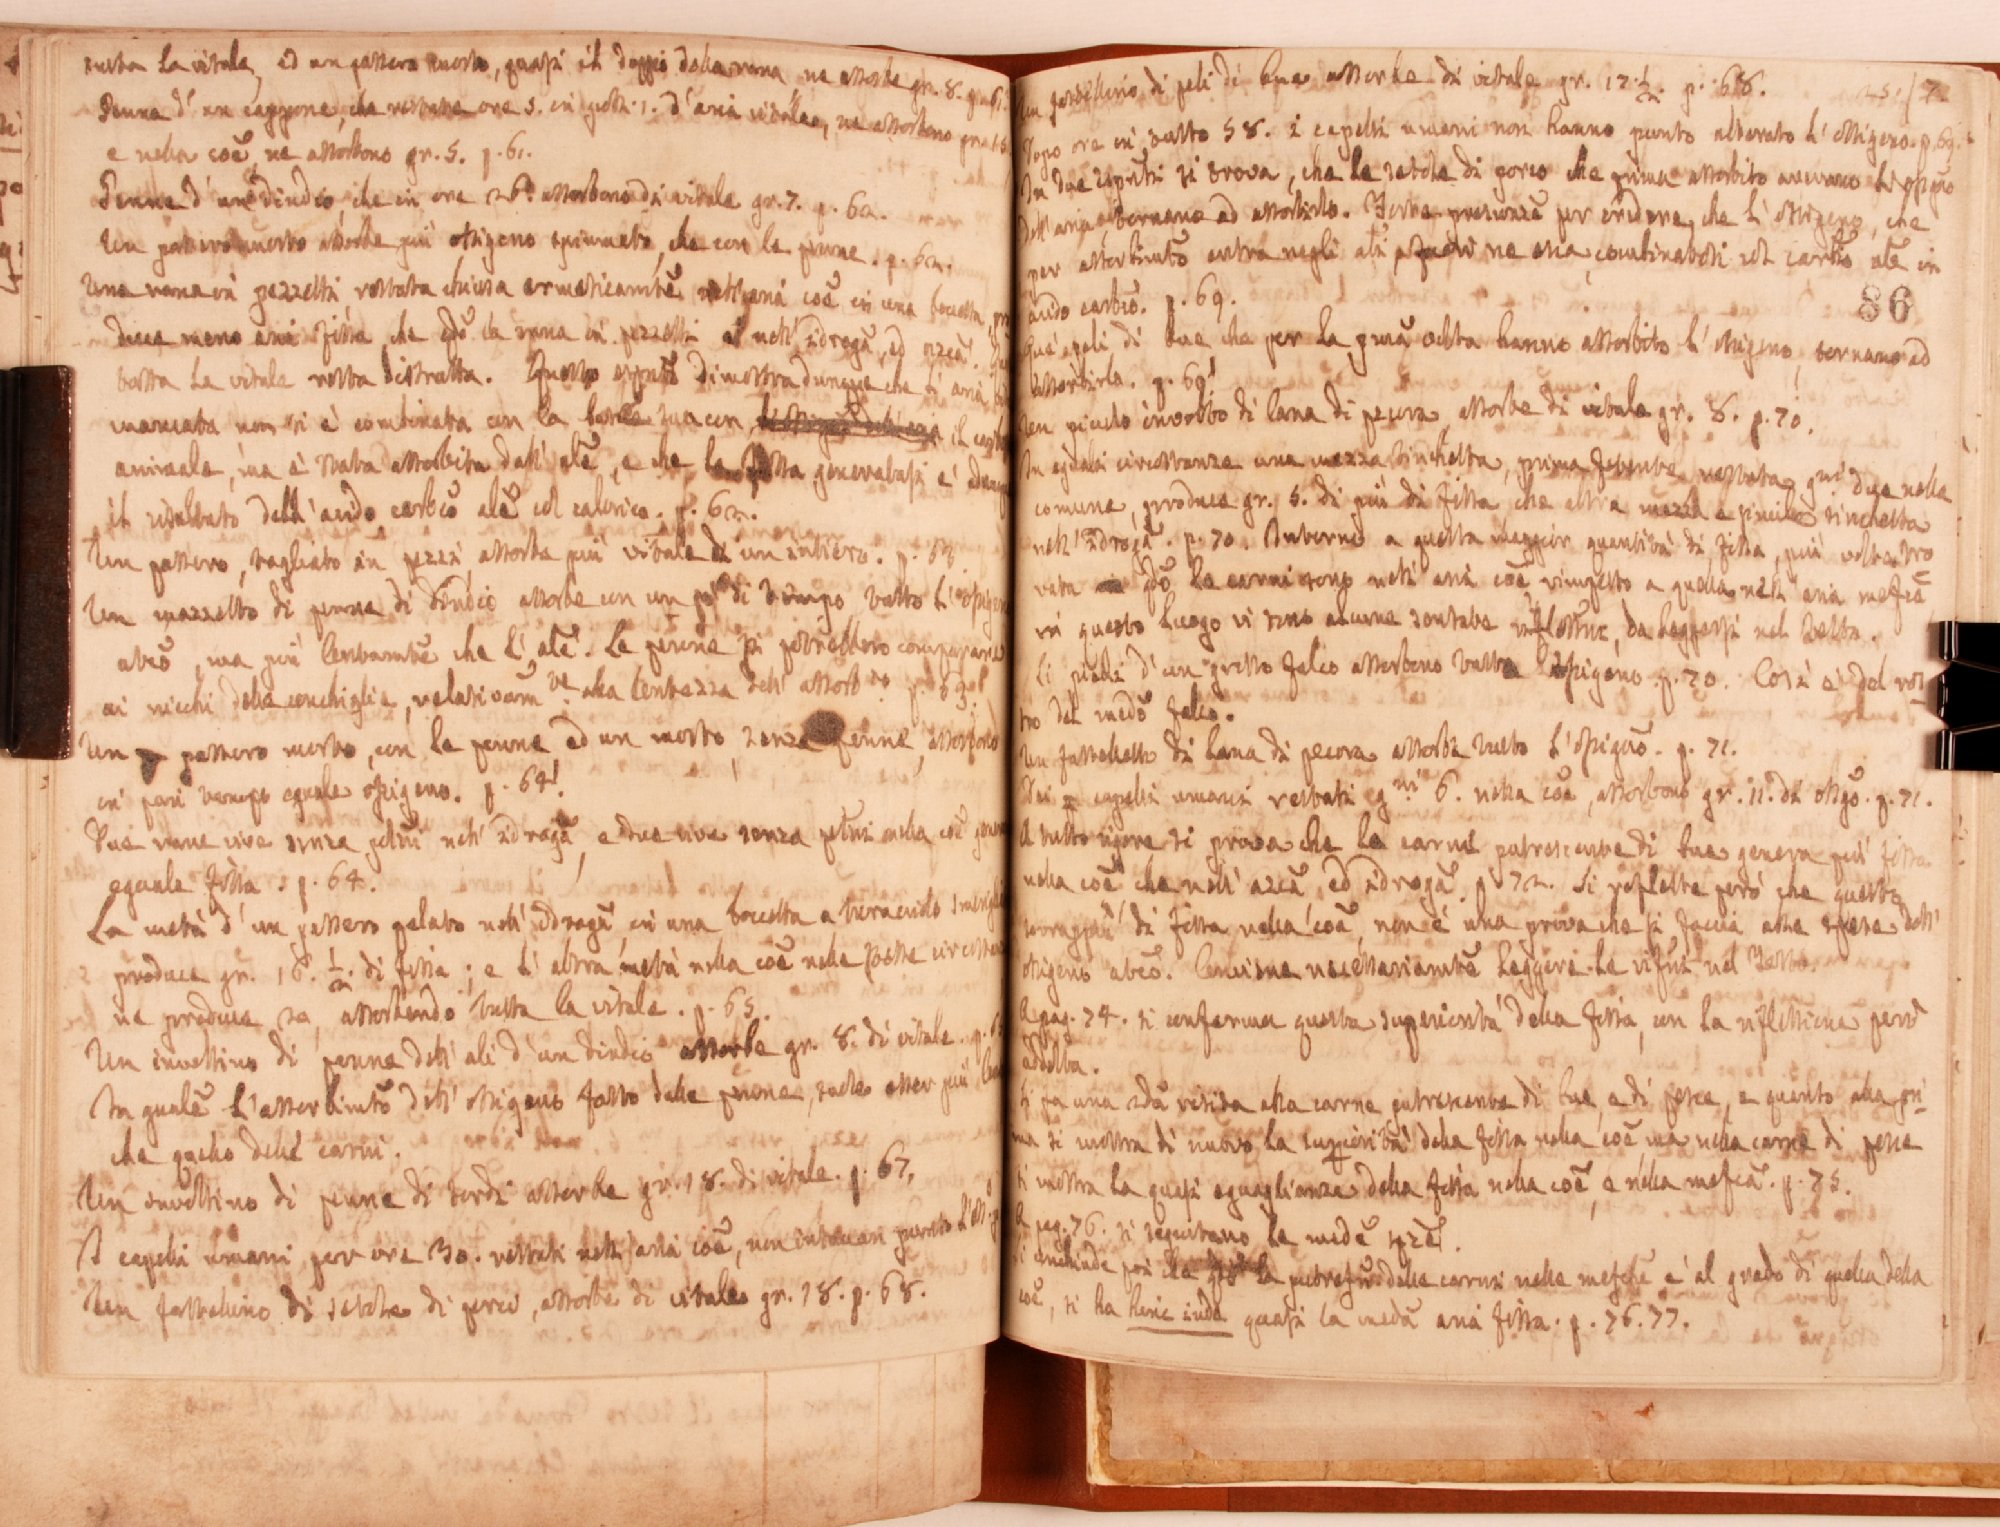 tutta la vitale, ed un passero morto, quasi il doppio della rana ne assorbe gr. 8. p. 61.
Penne d' un cappone, che restate ore 5. in gradi. 1. d' aria vitale, ne assorbono
e nella coē, ne assorbono gr. 5. p. 61.
Penne d' un dindio, che in ore 26. assorbono di vitale gr. 7. p. 62.
Un passero morto assorbe più ossigeno spiumato, che con le piume. p. 62.
Una rana in pezzetti restata chiusa ermeticamtē nell' aria coē in una boccetta,
duce meno aria fissa che qdō la rana in pezzetti è nell' idrogā, ed azcā.
tutta la vitale resta distrutta. Questo dimostra dunque che l' aria
mancata non si è combinata con la
animale, ma è stata assorbita dall' alē, e che la fissa generatasi è
il risultato dell' acido carbcō alē col calorico. p. 62.
Un passero, tagliato in pezzi, assorbe più vitale di un intiero. p.
Un mazzetto di penne di dindio assorbe con un po' di tempo tutto l' ossigeno
atcō, ma più lentamtē che l' alē. Le penne si potrebbero comparare
ai nicchi delle conchiglie, relativam.te alla lentezza dell' assorb.to p. 63.
Un passero morto, con le penne ed un morto, senza penne, assorbono
in pari tempo eguale ossigeno. p. 64.
Due rane vive senza polmi nell' idrogā, e due vive senza polmi nella coē
eguale fissa. p. 64.
La metà d' un passero pelato nell' idrogā, in una boccetta a turacciolo smerigliato
produce gr. 16. 1/2. di fissa; e l' altra metà nella coē nelle stesse circostanze
ne produce 20, assorbendo tutta la vitale. p. 65.
Un involtino di penne dell' ali d' un dindio assorbe gr. 8. di vitale. p.
In gnalē l' assorbimtō dell' ossigeno fatto dalle penne, suole esser più
che quello delle carni.
Un involtino di penne di tordi assorbe gr. 18. di vitale. p. 67.
I capelli umani per ore 30. restati nell' aria coē, non intaccan punto l'
Un fastellino di setole di porco, assorbe di vitale gr. 18. p. 68.
Un fastellino di peli di bue assorbe di vitale gr. 17. 1/2. p. 68.
7.
Dopo ore in tutto 58. i capelli umani non hanno punto alterato l' ossigeno. p. 69.
In due si trova, che le setole di porco che prima assorbito avevano l' ossigeno
dell' aria tornano ad assorbirlo. Forte presunzione per credere, che l' ossigeno, che
per assorbimtō entra negli ne esca, combinandosi col carbō alē in
acido carbcō. p. 69.
86
Que' peli di bue che per la prima volta hanno assorbito l' ossigeno, tornano ad
assorbirlo. p. 69.
Un piccolo involto di lana di pecora assorbe di vitale gr. 8. p. 70.
In eguali circostanze una mezza tinchetta, prima fetente restata gni due nella
comune, produce gr. 5. di più di fissa che altra mezza e simile tinchetta
nell' idrogā. p. 70. Intorno a questa maggior quantità di fissa, più volte tro
vata qdō le carni sono nell' aria coē rimpetto a quella nell' aria mefcā
in questo luogo vi sono alcune sensate riflessni, da leggersi nel Testo.
Li piedi d' un grosso falco assorbono tutto l' ossigeno. p. 70. Così è del ros-
tro del medō falco.
Un fastelletto di lana di pecora assorbe tutto l' ossigeno. p. 71.
Dei capelli umani restati g.ni 6. nella coē, assorbono gr. 11. di ossgō. p. 71.
A tutto rigore si prova che la carne putrescente di bue genera più fissa
nella coē che nell' azcā, ed idrogā. p. 72. Si riflette però che questa
di fissa nella coē, non è una prova che si faccia alle spese dell'
ossigeno atcō. Conviene necessariamtē leggere le rifni nel Testo.
A pag. 74. si conferma questa superiorità della fissa, con la riflessione però
addotta.
Si fa una 2dā rivista alla carne putrescente di bue, e di pesce, e quanto alla pri-
ma si mostra di nuovo la superiorità della fissa nella coē, ma nella carne di pesce
si mostra la quasi eguaglianza della fissa nella coē, e nella mefcā. p. 75.
A pag. 76. si seguitano le medē
Si conchiude poi che qdō la putrefnē delle carni nelle mefchē è al grado di quella della
coē, si ha hinc inde quasi la medā aria fissa. p. 76. 77.